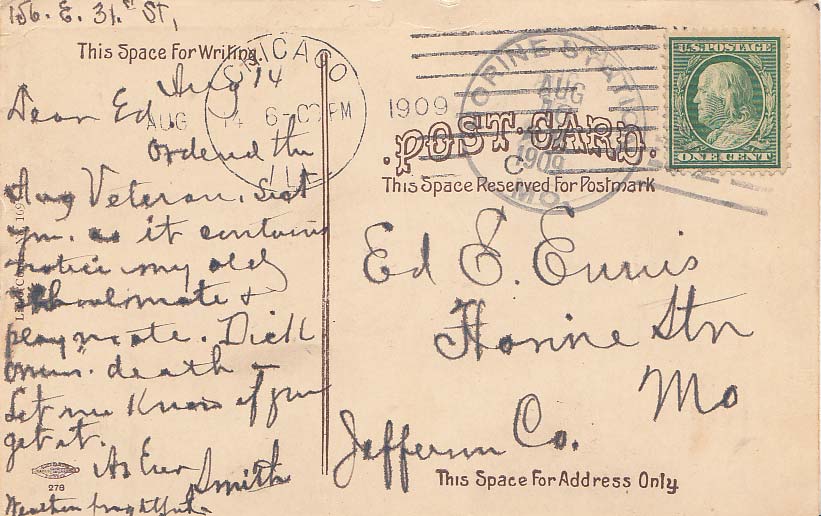 156. E. 31.st St,
This Space For Writing.
Aug 14
Dear Ed
Ordered the
Aug Veteran. Sent
you. as it contains
notice my old
Schoolmate &
playmate. Dick
death
Let me Know if you
get it.
As Ever
Smith
Weather frightful.
276
CHICAGO
AUG 14 6-00 PM
1909
ILL.
HORINE STATION
AUG
1909
MO.
U.S. POSTAGE
ONE CENT
POST CARD.
This Space Reserved For Postmark
Ed E. Ennis
Horine Stn
Mo
Jefferson Co.
This Space For Address Only